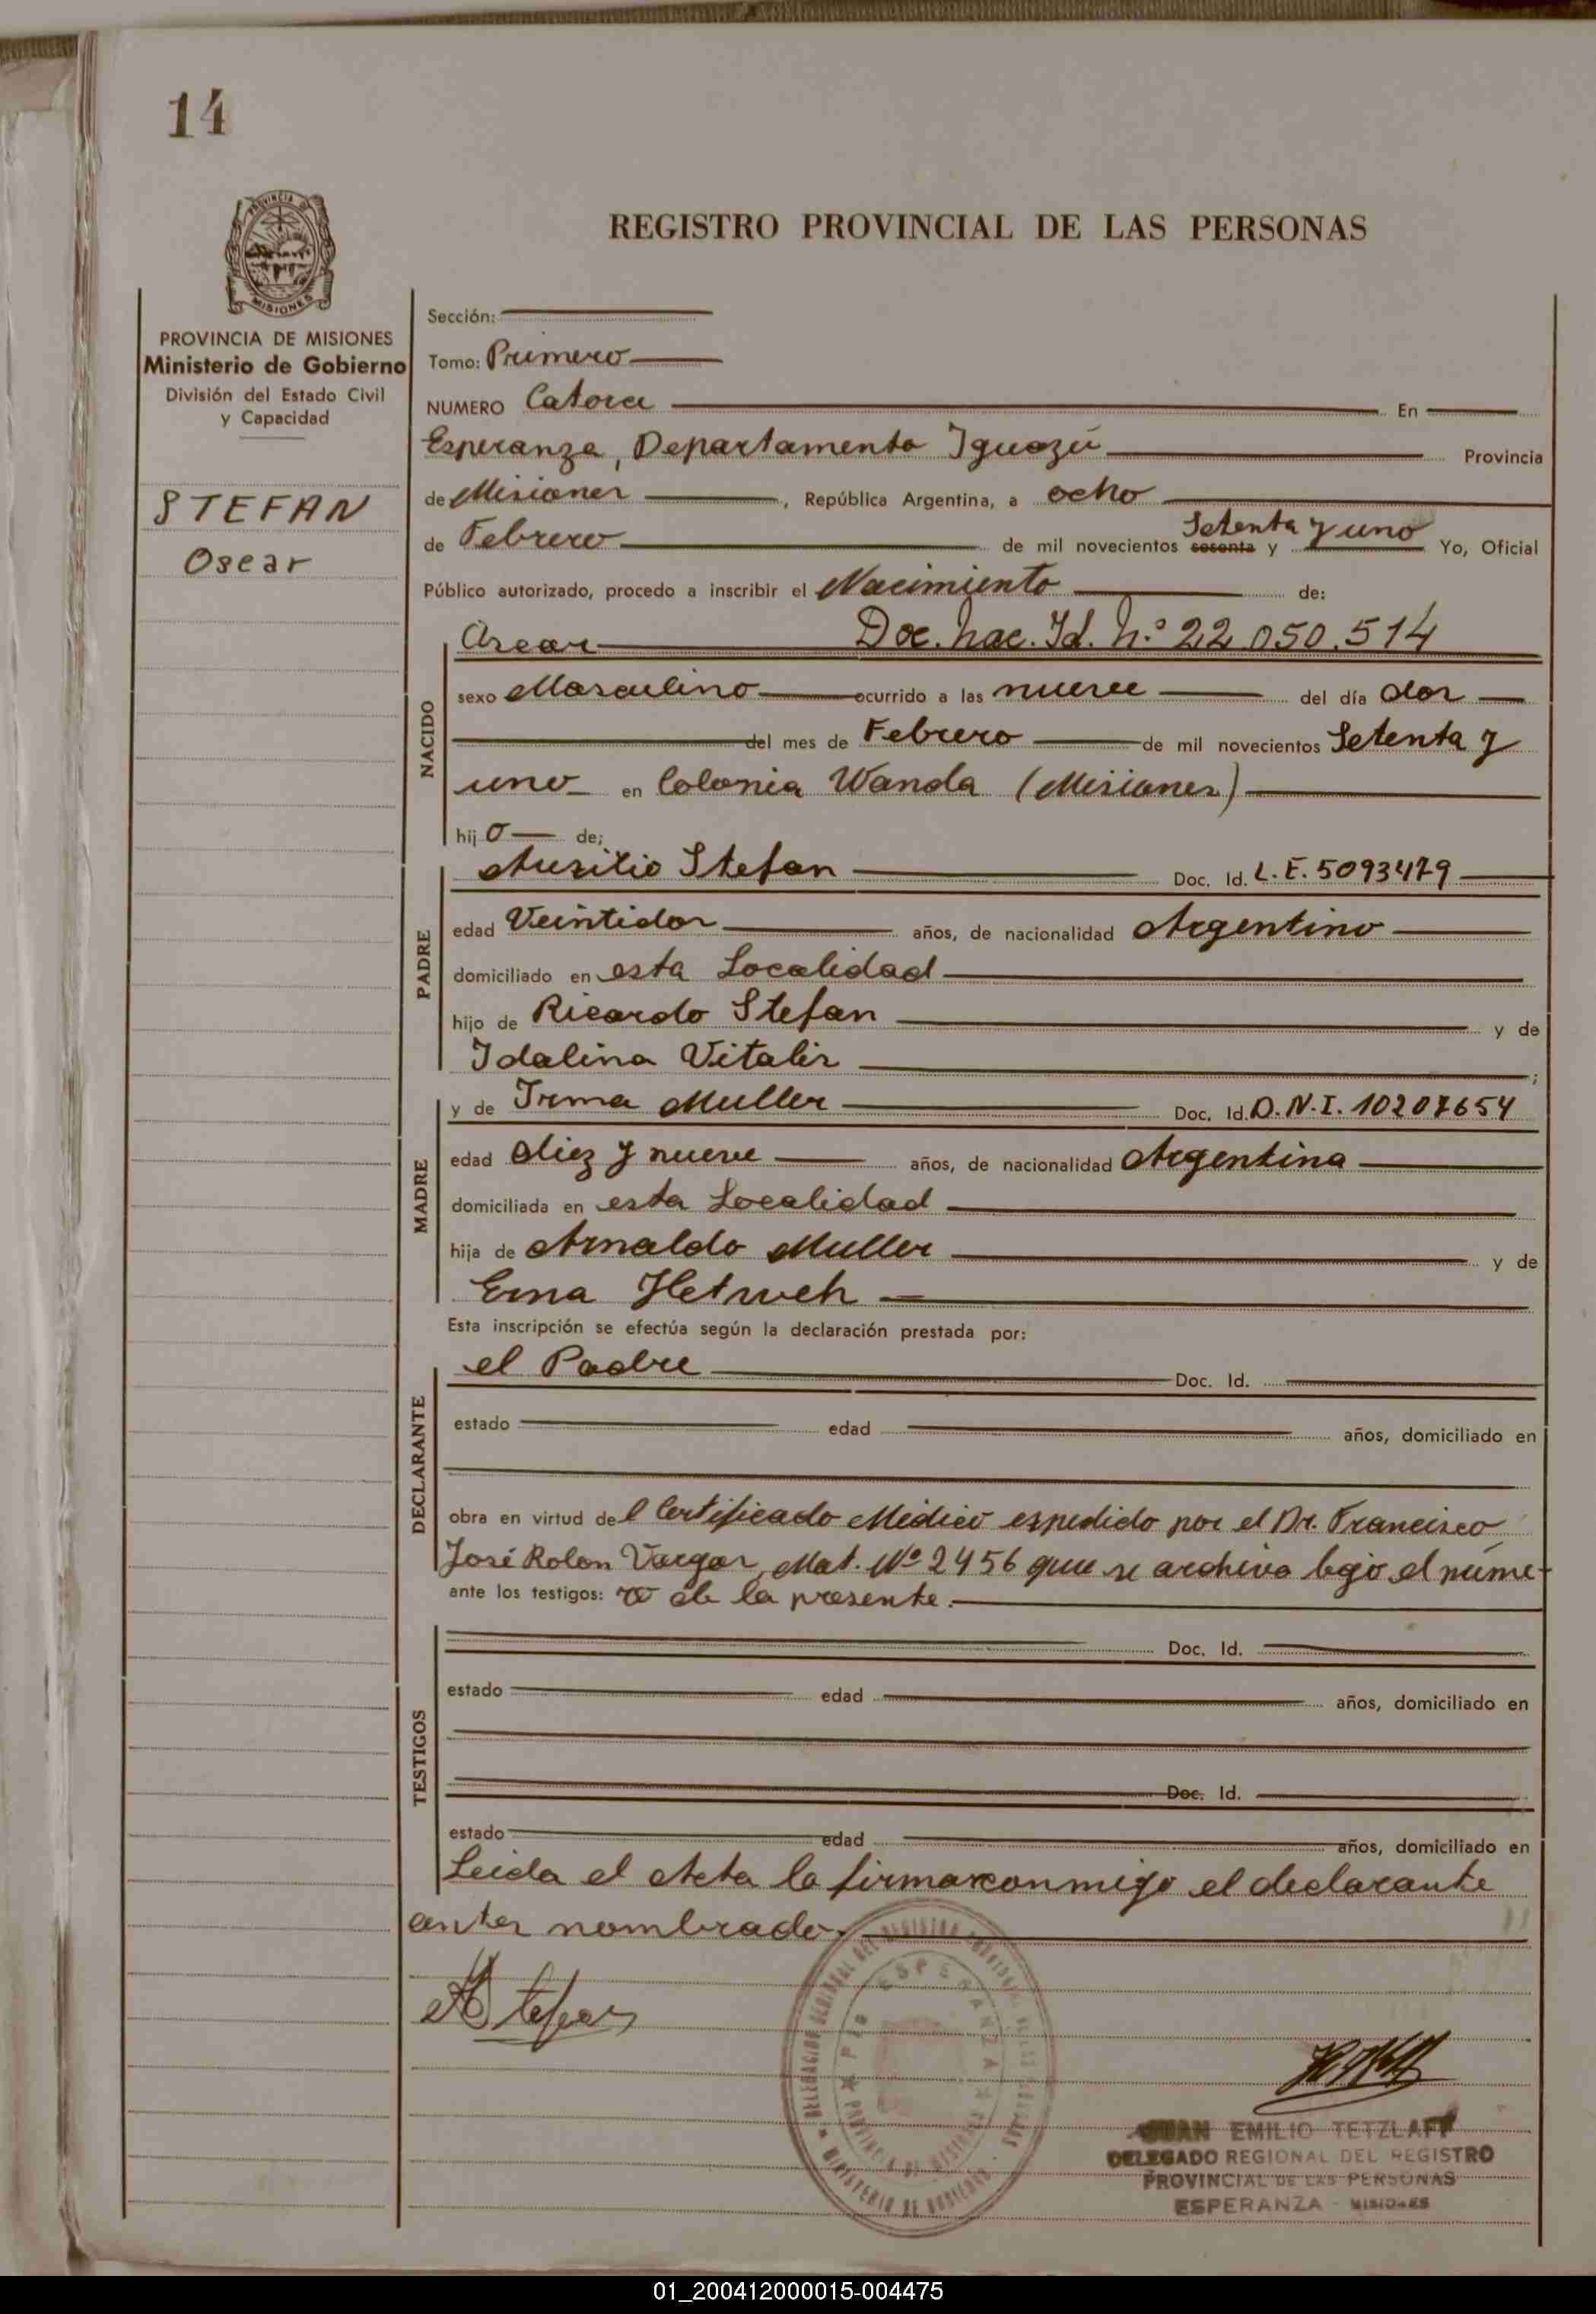 14
PROVINCIA DE MISIONES
REGISTRO PROVINCIAL DE LAS PERSONAS
PROVINCIA DE MISIONES
Ministerio de Gobierno
División del Estado Civil
y Capacidad
STEFAN
Oscar
Sección:
Tomo: Primero
NUMERO Catorce En
Esperanza, Departamento Iguazú Provincia
de Misiones , República Argentina, a ocho
de Febrero de mil novecientos sesenta y Setenta y uno Yo, Oficial
Público autorizado, procedo a inscribir el Nacimiento de:
NACIDO
Oscar Doc. Nac. Id. N.º 22.050.514
sexo Masculino ocurrido a las nueve del día dos
del mes de Febrero de mil novecientos Setenta y
uno en Colonia Wanda (Misiones)
hij o de;
PADRE
Auxilio Stefan Doc. Id. L.E. 5093479
edad Veintidos años, de nacionalidad Argentino
domiciliado en esta Localidad
hijo de Ricardo Stefan y de
Idalina Vitalis ;
MADRE
y de Irma Muller Doc. Id. D.N.I. 10207654
edad diez y nueve años, de nacionalidad Argentina
domiciliada en esta Localidad
hija de Arnaldo Muller y de
Erna
Esta inscripción se efectúa según la declaración prestada por:
DECLARANTE
el Padre Doc. Id.
estado edad años, domiciliado en
obra en virtud de l Certificado Médico expedido por el Dr. Francisco
José Rolon Vargas, Mat. Nº 2456 que se archiva bajo el núme-
ante los testigos: ro de la presente.
TESTIGOS
Doc. Id.
estado edad años, domiciliado en
Doc. Id.
estado edad años, domiciliado en
Leida el Acta la firma conmigo el declarante
antes nombrado.
AStefan
DELEGACION REGIONAL DEL REGISTRO PROVINCIAL DE LAS PERSONAS
MINISTERIO DE GOBIERNO
ESPERANZA
PROVINCIA DE MISIONES
JUAN EMILIO TETZLAFF
DELEGADO REGIONAL DEL REGISTRO
PROVINCIAL DE LAS PERSONAS
ESPERANZA - MISIONES
01_200412000015-004475